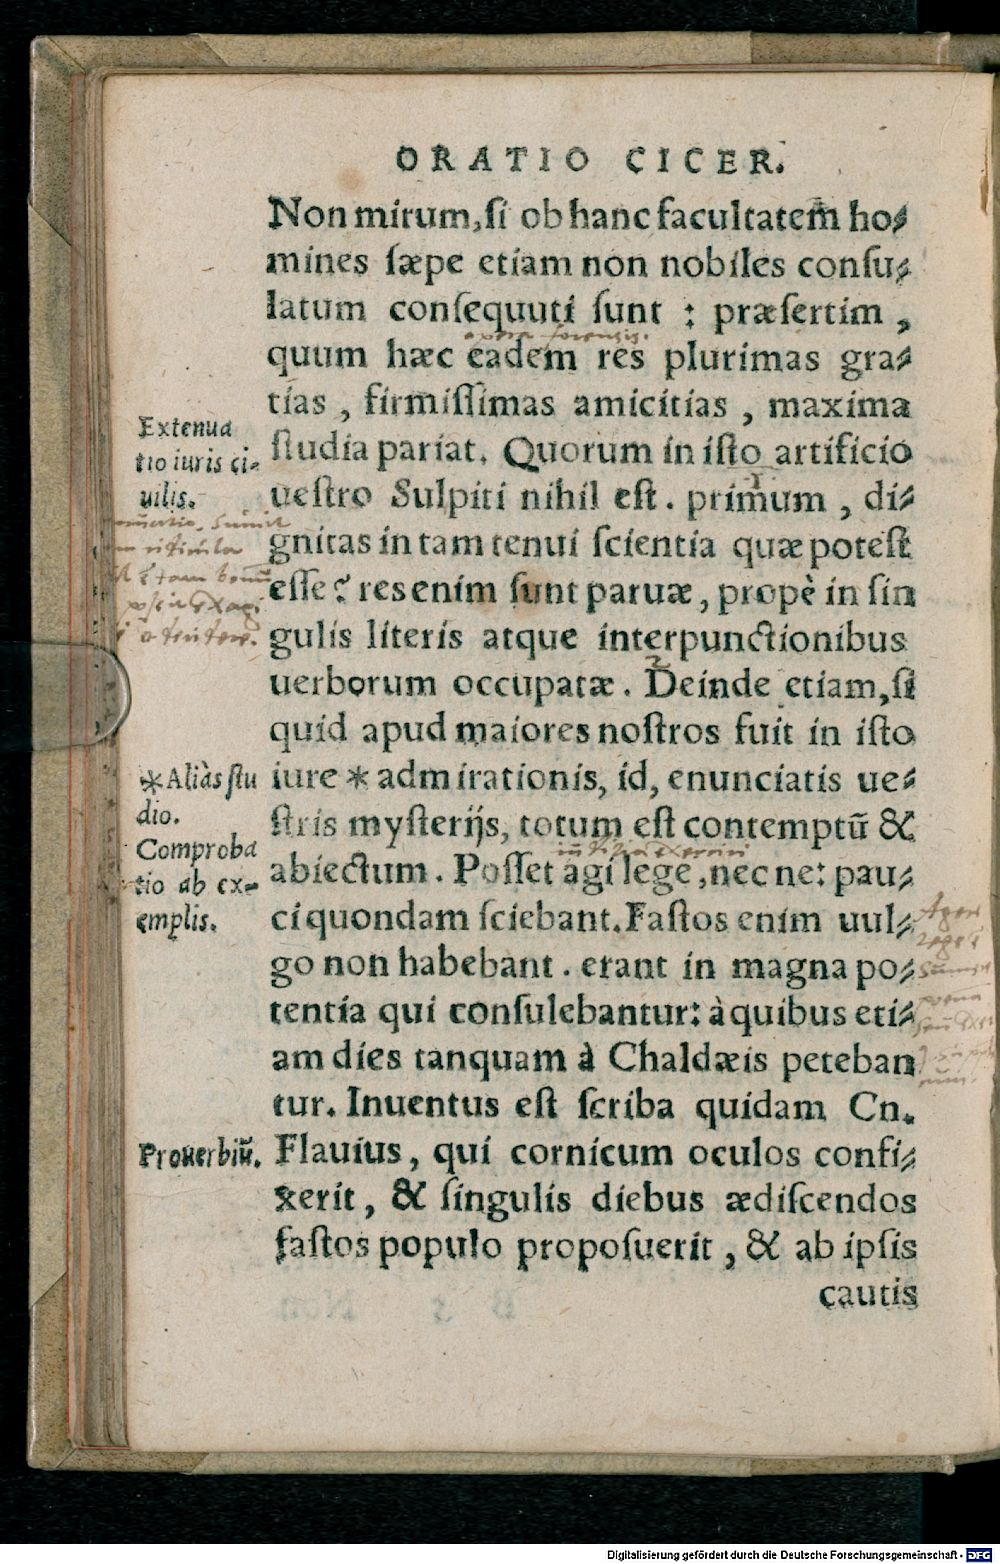 ORATIO CICER.
Non mirum, ſi ob hanc facultatem̄ ho⸗
mines ſæpe etiam non nobiles conſu⸗
latum conſequuti ſunt : præſertim ,
opera forensis.
quum hæc eadem res plurimas gra⸗
tias , firmiſſimas amicitias , maxima
ſtudia pariat. Quorum in iſto artificio
ueſtro Sulpiti nihil eſt. primum , di⸗
gnitas in tam tenui ſcientia quæ poteſt
eſſe? res enim ſunt paruæ, propè in ſin
gulis literis atque interpunctionibus
uerborum occupatæ. Deinde etiam, ſi
quid apud maiores noſtros fuit in iſto
iure * admirationis, id, enunciatis ue⸗
ſtris myſterijs, totum eſt contemptū &
abiectum. Poſſet agi lege, nec ne: pau⸗
ci quondam ſciebant. Faſtos enim uul⸗
go non habebant. erant in magna po⸗
tentia qui conſulebantur: à quibus eti⸗
am dies tanquam à Chaldæis peteban
tur. Inuentus eſt ſcriba quidam Cn.
Flauius, qui cornicum oculos confi⸗
xerit, & ſingulis diebus ædiſcendos
faſtos populo propoſuerit, & ab ipſis
cautis
Extenua
tio iuris ci⸗
uilis.
* Aliàs ſtu
dio.
Comproba
tio ab ex⸗
emplis.
Prouerbiū.
Digitalisierung gefördert durch die Deutsche Forschungsgemeinschaft - DFG